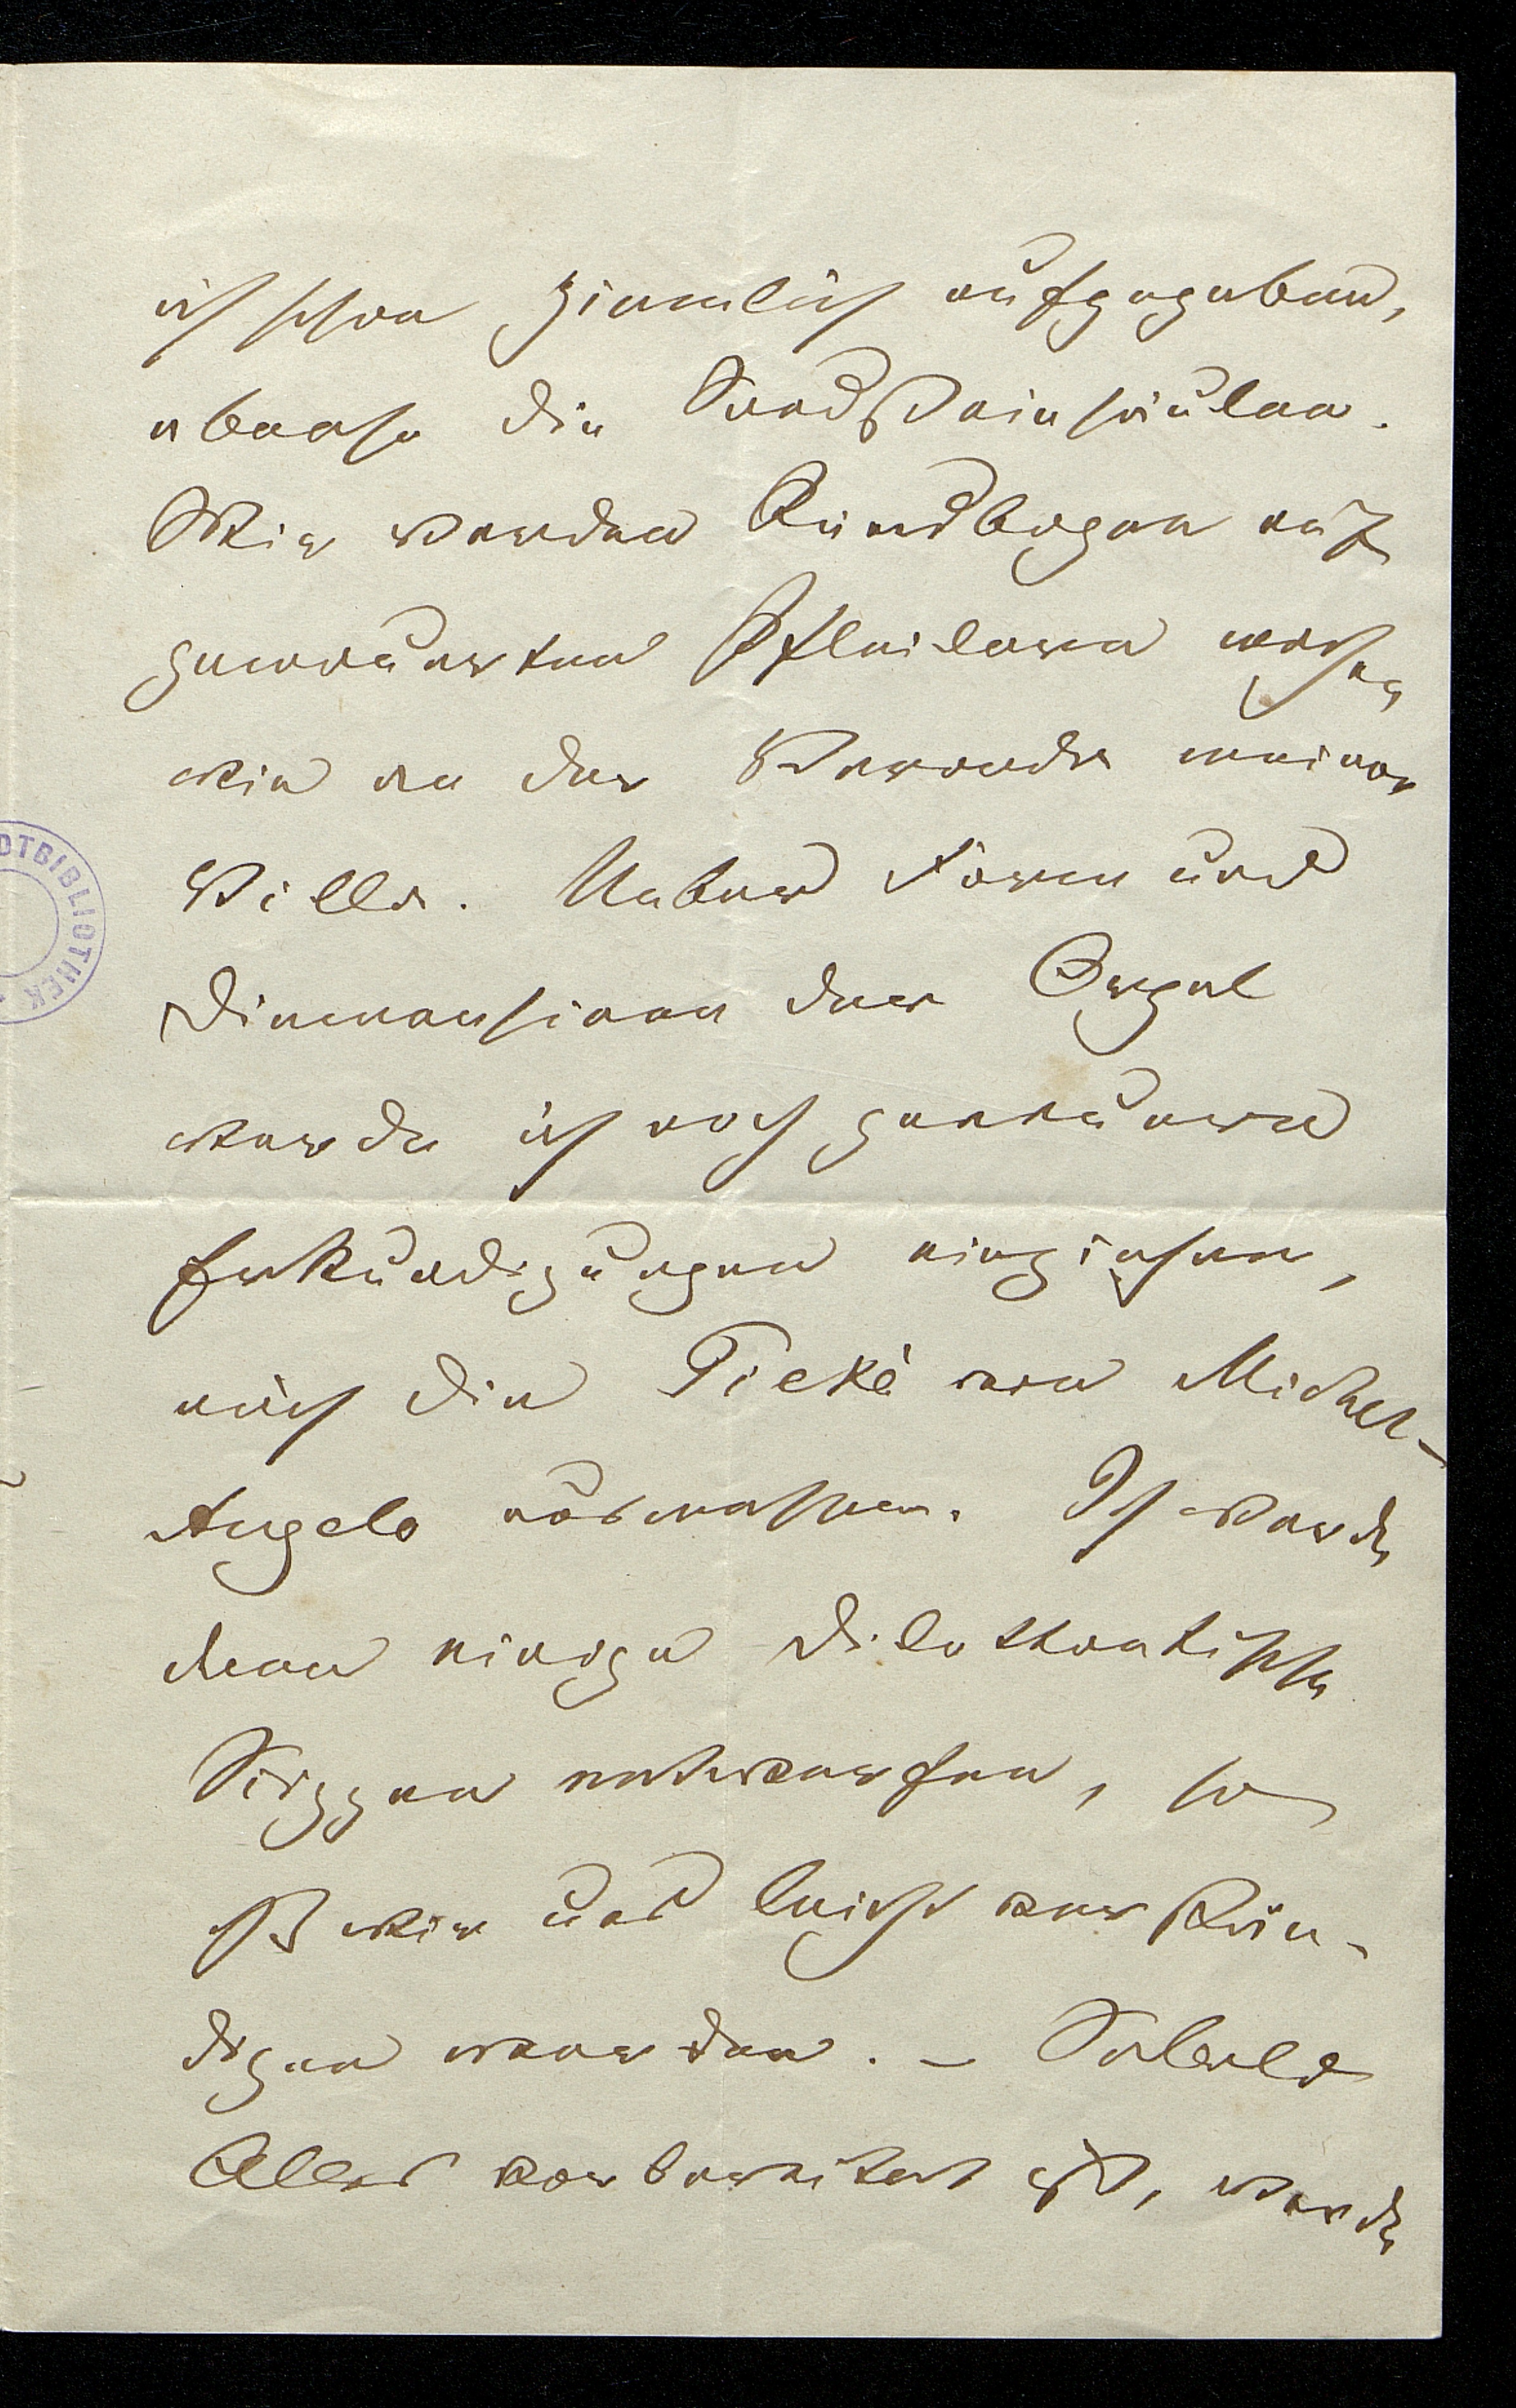 ich schon ziemlich aufgegeben,
ebenso die Sandsteinsäulen.
Wir werden Rundbogen auf
gemauerten Pfeilern machen
wie an der Veranda meiner
Villa. Ueber Form und
Dimensionen der Orgel
werde ich noch genauere
Erkundigungen einziehen,
auch die Pietà von Michel-
Angelo ausmessen. Ich werde
dann einige dilettantische
Skizzen entwerfen, so
daß wir uns leicht verstän-
digen werden. – Sobald
Alles vorbereitet ist, werde
DTBIBLIOTHEK